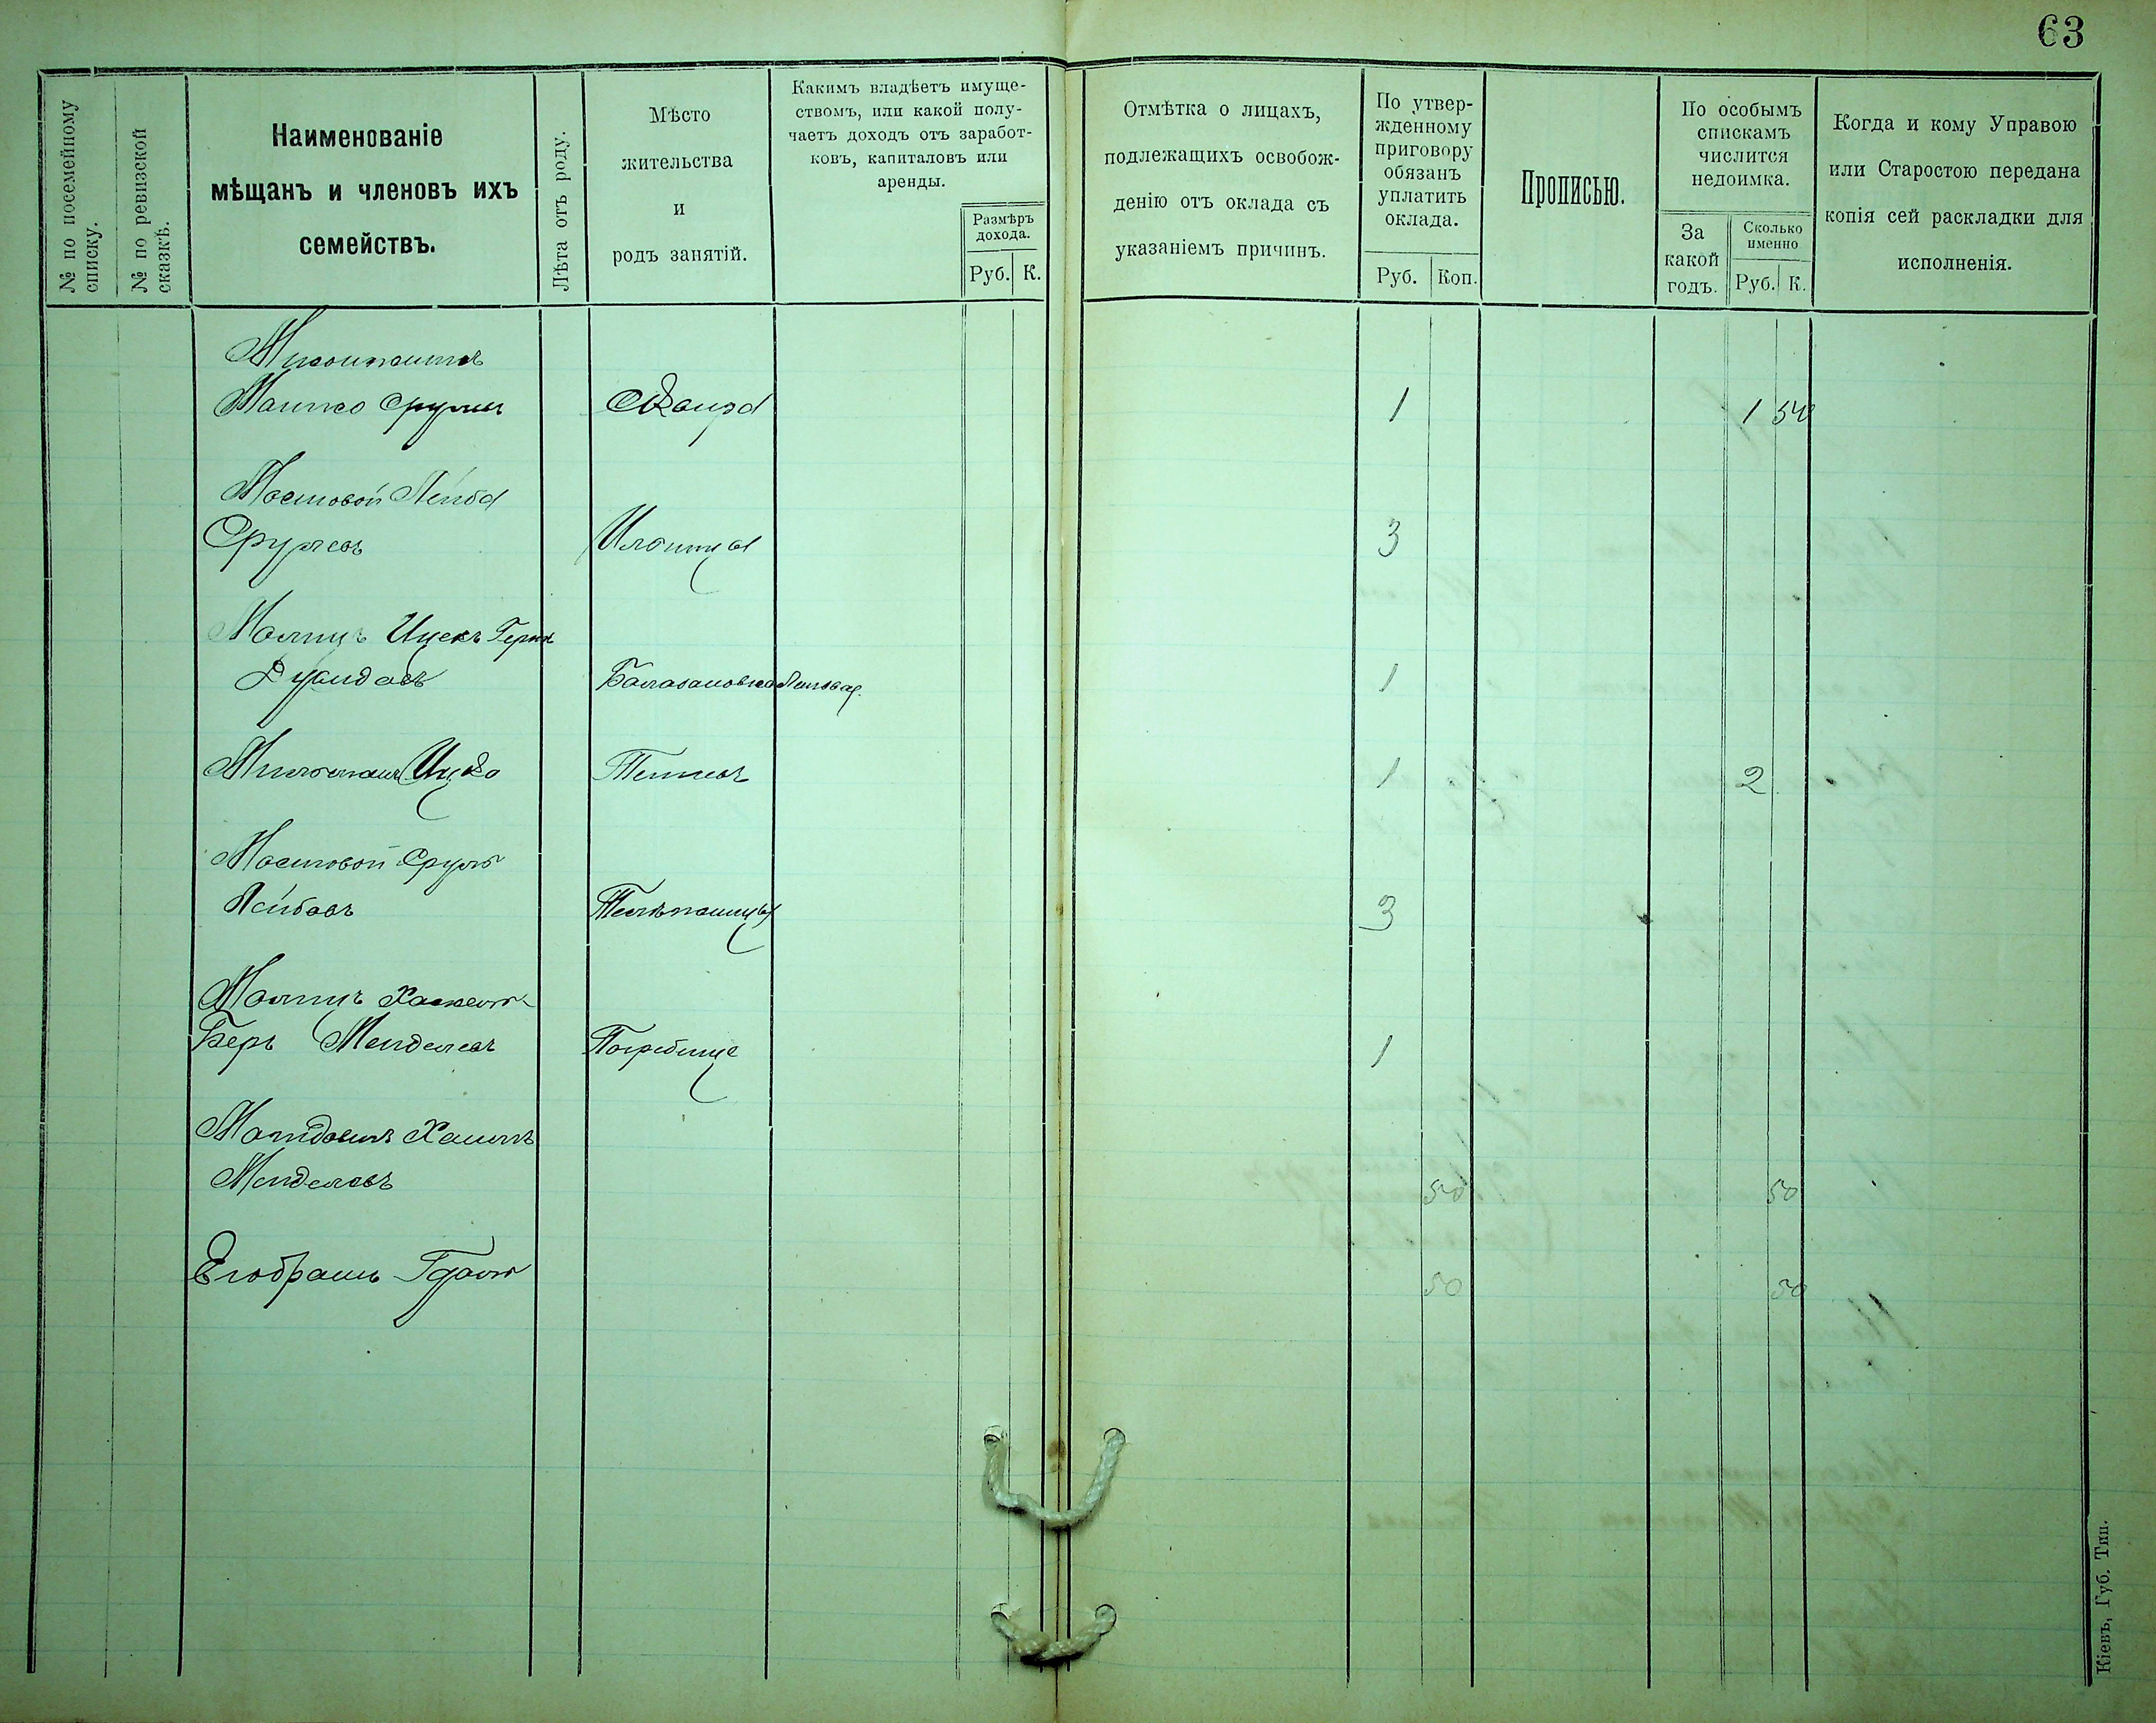 63
№ по посемейному
списку.
№ по ревизской
сказкѣ.
Наименованіе
мѣщанъ и членовъ ихъ
семействъ.
Лѣта отъ роду.
Мѣсто
жительства
и
родъ занятій.
Какимъ владѣетъ имуще-
ствомъ, или какой полу-
чаетъ доходъ отъ заработ-
ковъ, капиталовъ или
аренды.
Размѣръ
дохода.
Руб. К.
Отмѣтка о лицахъ,
подлежащихъ освобож-
денію отъ оклада съ
указаніемъ причинъ.
По утвер-
жденному
приговору
обязанъ
уплатить
оклада.
Руб. Коп.
Прописью.
По особымъ
спискамъ
числится
недоимка.
За
какой
годъ.
Сколько
именно
Руб. К.
Когда и кому Управою
или Старостою передана
копія сей раскладки для
исполненія.
Сквира 1 1 50
Мостовой Лейба
Срулевъ Ильинцы 3
Ицекъ
1
Ицко Тетіевъ 1 2
Мостовой Сруль
Лейбовъ 3
Беръ Менделевъ Погребище 1
Менделевъ 50 50
50 50
Кіевъ, Губ. Тип.